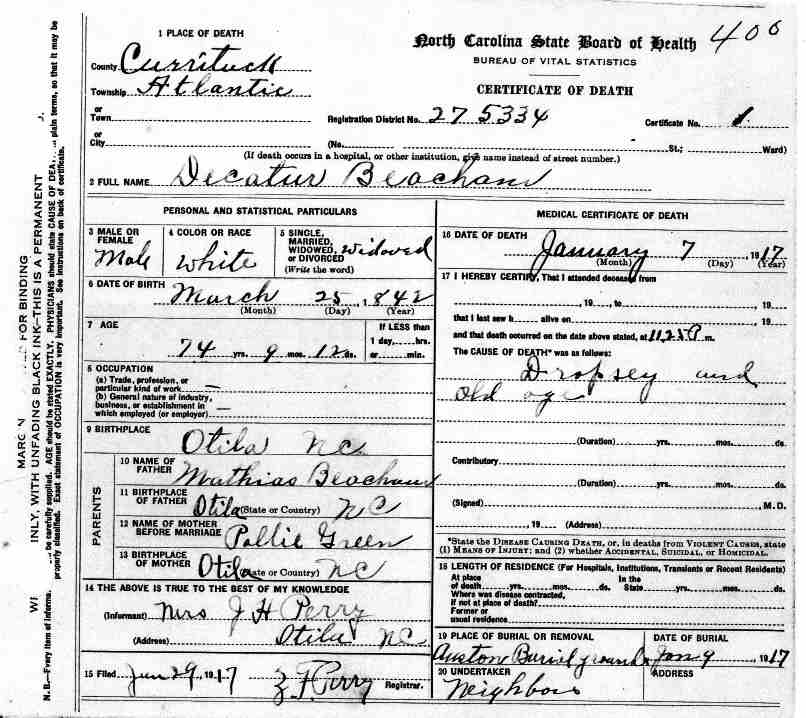 400
North Carolina State Board of Health
BUREAU OF VITAL STATISTICS
CERTIFICATE OF DEATH
1 PLACE OF DEATH
County Currituck
Township Atlantic
or
Town
or
City
Registration District No. 27 5334 Certificate No. 1
(No. St.; Ward)
(If death occurs in a hospital, or other institution, give name instead of street number.)
2 FULL NAME Decatur Beacham
PERSONAL AND STATISTICAL PARTICULARS
3 MALE OR FEMALE
Male
4 COLOR OR RACE
White
5 SINGLE, MARRIED, WIDOWED, OR DIVORCED
(Write the word)
Widoved
6 DATE OF BIRTH March 25, 1842
(Month) (Day) (Year)
7 AGE
74 yrs. 9 mos. 12 ds.
If LESS than
1 day, hrs.
or min.
8 OCCUPATION
(a) Trade, profession, or
particular kind of work
(b) General nature of industry,
business, or establishment in
which employed (or employer)
9 BIRTHPLACE
Otila NC
PARENTS
10 NAME OF FATHER
Mathias Beacham
11 BIRTHPLACE OF FATHER
Otila (State or Country) NC
12 NAME OF MOTHER BEFORE MARRIAGE
Pollie Green
13 BIRTHPLACE OF MOTHER
Otila (State or Country) NC
14 THE ABOVE IS TRUE TO THE BEST OF MY KNOWLEDGE
(Informant) Mrs J H Perry
(Address) Otila NC
15 Filed Jan 29, 1917 Z F Perry
Registrar.
MEDICAL CERTIFICATE OF DEATH
16 DATE OF DEATH
January 7 1917
(Month) (Day) (Year)
17 I HEREBY CERTIFY, That I attended deceased from
, 19 , to , 19
that I last saw h alive on , 19
and that death occurred on the date above stated, at 11.25 P m.
The CAUSE OF DEATH* was as follows:
Dropsey and
old age
(Duration) yrs. mos. ds.
Contributory
(Duration) yrs. mos. ds.
(Signed) , M.D.
, 19 (Address)
*State the DISEASE CAUSING DEATH, or, in deaths from VIOLENT CAUSES, state
(1) MEANS OF INJURY; and (2) whether ACCIDENTAL, SUICIDAL, or HOMICIDAL.
18 LENGTH OF RESIDENCE (For Hospitals, Institutions, Transients or Recent Residents)
At place of death yrs. mos. ds. In the State yrs. mos. ds.
Where was disease contracted,
if not at place of death?
Former or
usual residence
19 PLACE OF BURIAL OR REMOVAL
Auston Burial ground
DATE OF BURIAL
Jan 9, 1917
20 UNDERTAKER
Neighbors
ADDRESS
FOR BINDING
INLY, WITH UNFADING BLACK INK—THIS IS A PERMANENT
N. B.—Every item of informa be carefully supplied. AGE should be stated EXACTLY. PHYSICIANS should state CAUSE OF DEA plain terms, so that it may be
properly classified. Exact statement of OCCUPATION is very important. See instructions on back of certificate.